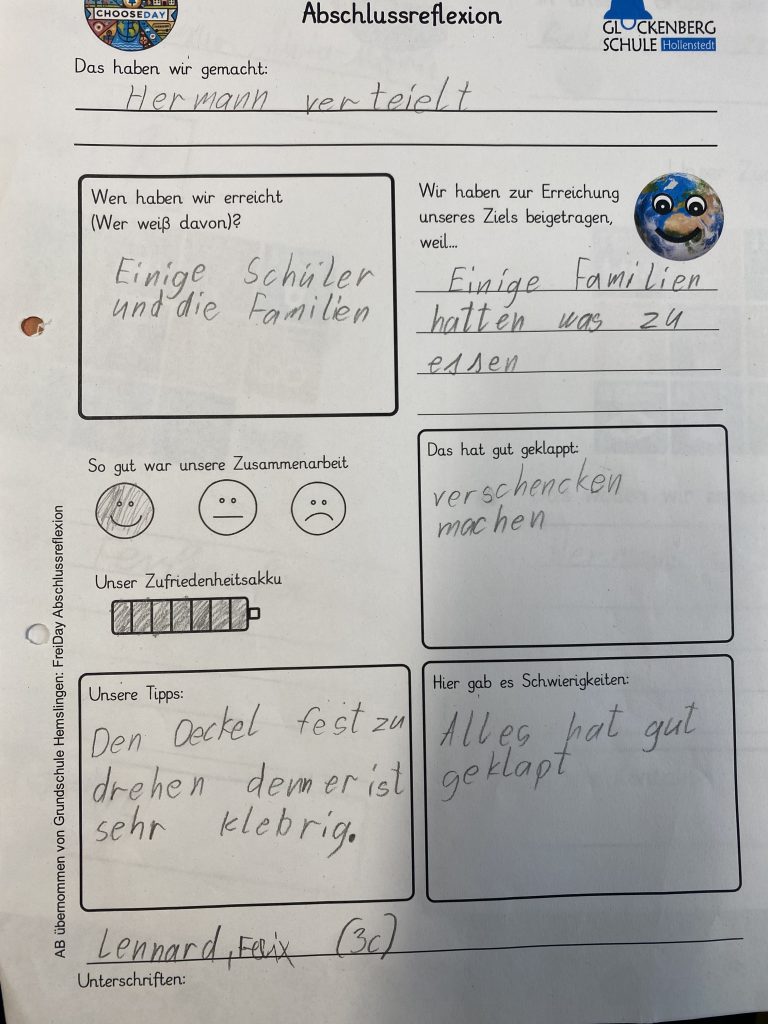 CHOOSEDAY
Abschlussreflexion
GLOCKENBERG
SCHULE Hollenstedt
Das haben wir gemacht:
Hermann verteielt
Wen haben wir erreicht
(Wer weiß davon)?
Einige Schüler
und die Familien
Wir haben zur Erreichung
unseres Ziels beigetragen,
weil...
Einige Familien
hatten was zu
essen
So gut war unsere Zusammenarbeit
Unser Zufriedenheitsakku
Das hat gut geklappt:
verschencken
machen
Unsere Tipps:
Den Deckel fest zu
drehen denn er ist
sehr klebrig.
Hier gab es Schwierigkeiten:
Alles hat gut
geklapt
Lennard, Felix (3c)
Unterschriften:
AB übernommen von Grundschule Hemslingen: FreiDay Abschlussreflexion